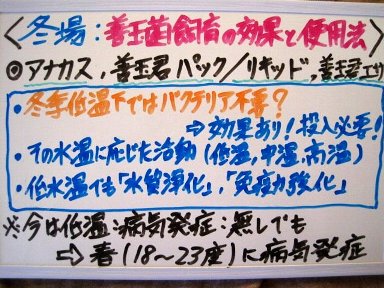 〈冬場：善玉菌飼育の効果と使用法〉
◎アナカス，善玉君パック/リキッド，善玉君エサ
・冬季低温下ではバクテリア不要？
⇒効果あり！投入必要！
・その水温に応じた活動（低温，中温，高温）
・低水温でも「水質浄化」，「免疫力強化」
※今は低温：病気発症：無しでも
⇨春（18〜23度）に病気発症